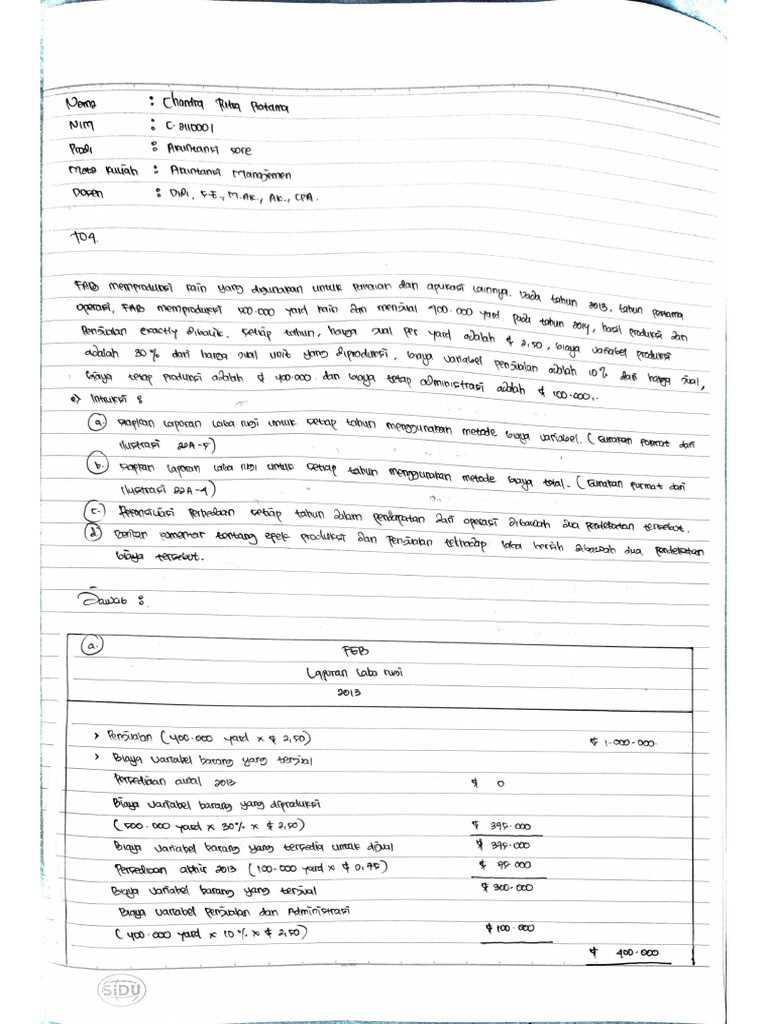 Nama : Chandra Putra Pratama
NIM : C.2110001
Prodi : Akuntansi Sore
Mata kuliah : Akuntansi Manajemen
Dosen : Didi, S.E., M.Ak., Ak., CPA.
T04.
FAB memproduksi kain yang digunakan untuk pakaian dan aplikasi lainnya. Pada tahun 2013, tahun pertama
operasi, FAB memproduksi 500.000 yard kain dan menjual 400.000 yard pada tahun 2014, hasil produksi dan
Penjualan exactly dibalik. setiap tahun, harga jual per yard adalah $ 2,50, biaya variabel produksi
adalah 30% dari harga jual unit yang diproduksi, biaya variabel penjualan adalah 10% dari harga jual,
biaya tetap produksi adalah $ 400.000 dan biaya tetap administrasi adalah $ 100.000,.
Intruksi :
a. siapkan laporan laba rugi untuk setiap tahun menggunakan metode biaya variabel. (Gunakan format dari
ilustrasi 22A-5)
b. siapkan laporan laba rugi untuk setiap tahun menggunakan metode biaya total. (Gunakan format dari
ilustrasi 22A-4)
c. Rekonsiliasi Perbedaan setiap tahun dalam pendapatan dari operasi dibawah dua pendekatan tersebut.
d. Berikan komentar tentang efek produksi dan Penjualan terhadap laba bersih dibawah dua pendekatan
biaya tersebut.
Jawab :
a. FEB
Laporan Laba rugi
2013
> Penjualan (400.000 yard x $ 2,50) $ 1.000.000
> Biaya Variabel barang yang terjual
Persediaan awal 2013 $ 0
Biaya variabel barang yang diproduksi
(500.000 yard x 30% x $ 2,50) $ 375.000
Biaya variabel barang yang tersedia untuk dijual $ 375.000
Persediaan akhir 2013 (100.000 yard x $ 0,75) $ 75.000
Biaya Variabel barang yang terjual $ 300.000
Biaya variabel Penjualan dan Administrasi
(400.000 yard x 10% x $ 2,50) $ 100.000
$ 400.000
SiDU